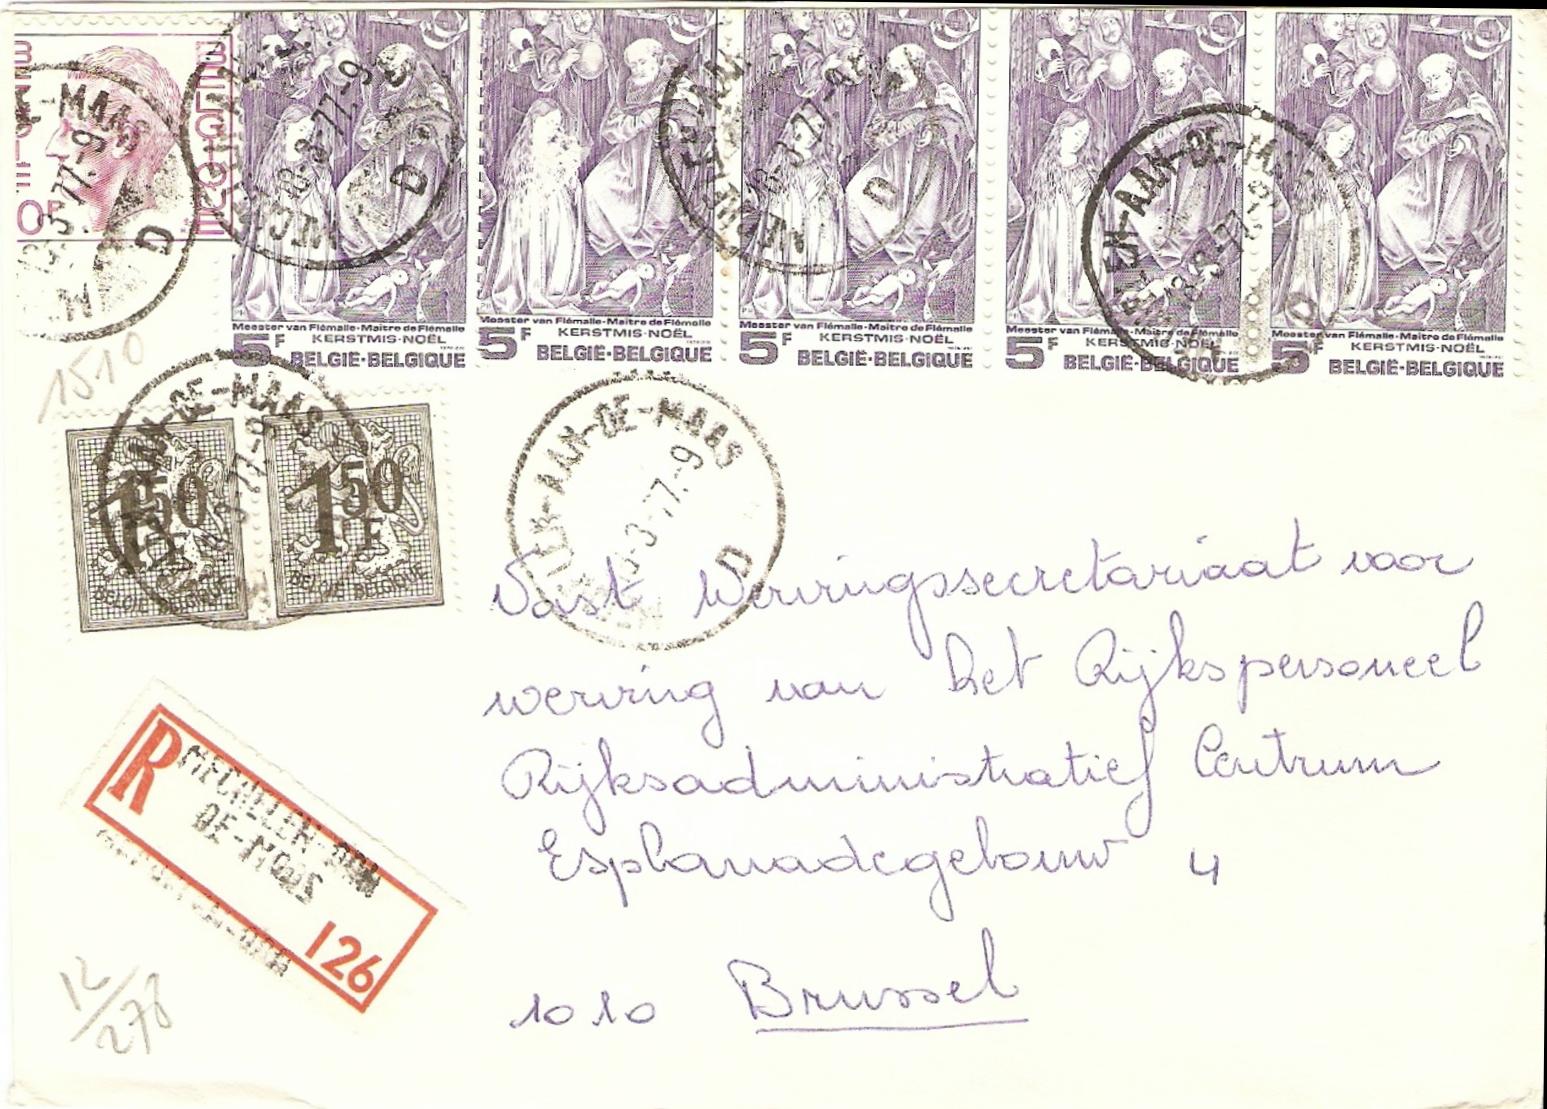 BELGIË BELGIQUE
Meester van Flémalle-Maître de Flémalle
KERSTMIS-NOËL
5F BELGIË-BELGIQUE
Meester van Flémalle-Maître de Flémalle
KERSTMIS-NOËL
5F BELGIË-BELGIQUE
Meester van Flémalle-Maître de Flémalle
KERSTMIS-NOËL
5F BELGIË-BELGIQUE
Meester van Flémalle-Maître de Flémalle
KERSTMIS-NOËL
5F BELGIË-BELGIQUE
Meester van Flémalle-Maître de Flémalle
KERSTMIS-NOËL
5F BELGIË-BELGIQUE
1510
1F50
BELGIE BELGIQUE
1F50
BELGIE BELGIQUE
-AAN-DE-MAAS
-3-77.-9
D
Vast Wervingssecretariaat voor
werving van het Rijkspersoneel
Rijksadministratief Centrum
Esplanadegebouw 4
1010 Brussel
R MECHELEN-AAN
DE-MAAS
126
12/278